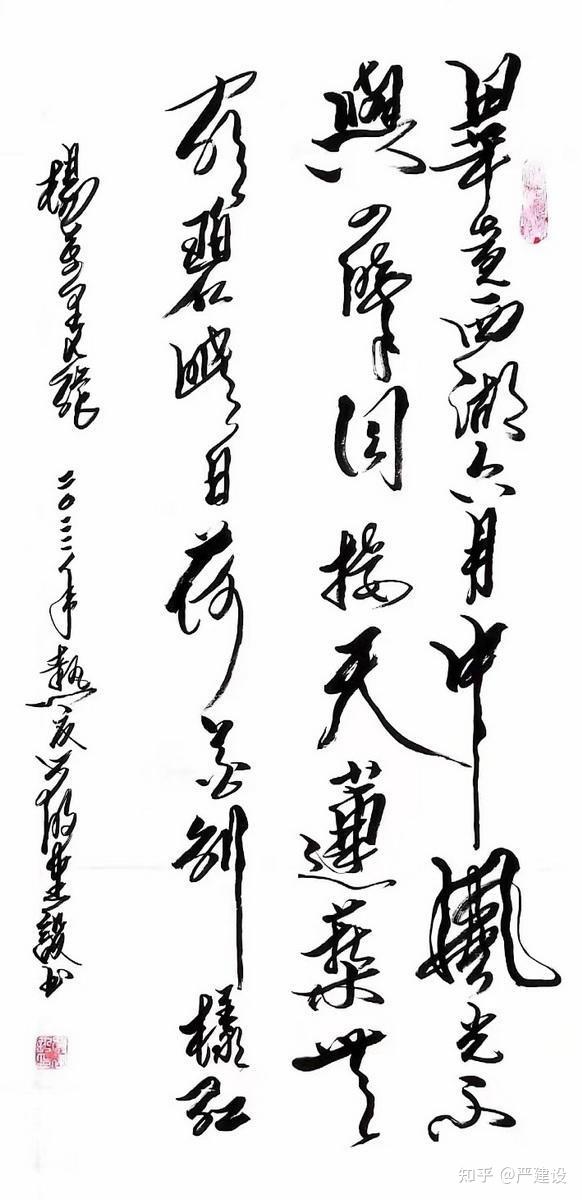 畢竟西湖六月中風光不
與四時同接天蓮葉無
窮碧映日荷花別樣紅
楊萬里 二〇二二年熱夏 建設書
知乎 @严建设